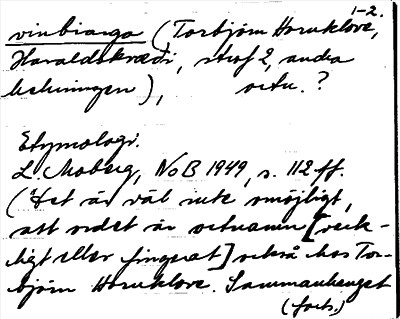 1-2.
vinbiarga (Torbjörn Hornklove,
Haraldskvæði, strof 2, andra
helningen), ortn.?
Etymologi.
L. Moberg, NoB 1949, s. 112 ff.
("Det är väl inte omöjligt,
att ordet är ortnamn [verk-
ligt eller fingerat] också hos Tor-
björn Hornklove. Sammanhanget
(forts.)